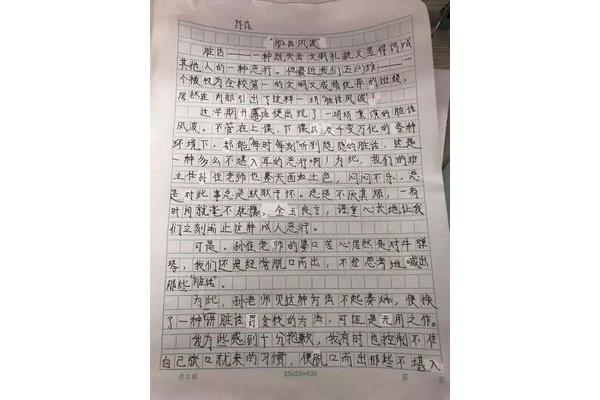 "脏话风波"
脏话——一种既失去文明礼貌又显得
其他人的一种恶行。但最近我们五(2)班——一
个被视为全校第一的文明又成绩优异的班级,
居然在内部引出了这样一场"脏话风波"!
这学期开始便出现了一场场重演的脏话
风波。不管在上课、下课以及千变万化的各种
环境下,都能"每时每刻"听到隐隐的脏话,这是
一种多么不堪入耳的恶行啊!为此,我们的班
主任孙佳老师也整天面如土色,闷闷不乐。总
是对此事总是耿耿于怀。总是不厌其烦,一有
时间就毫不犹豫、金玉良言,语重心长地让我
们立刻制止这种伤人恶行。
可是,孙佳老师的婆口苦心居然是对牛弹
琴,我们还是经常脱口而出,不经思考地喊出
那些"脏话"。
为此,孙老师见这种方法不起奏效,便换
了一种"讲脏话罚金钱的方法,可还是无用之作。
我为些感到十分抱歉,我有时也控制不住
自己脱口就来的习惯,便脱口而出那些不堪入
作文稿 20x20=400 第 页